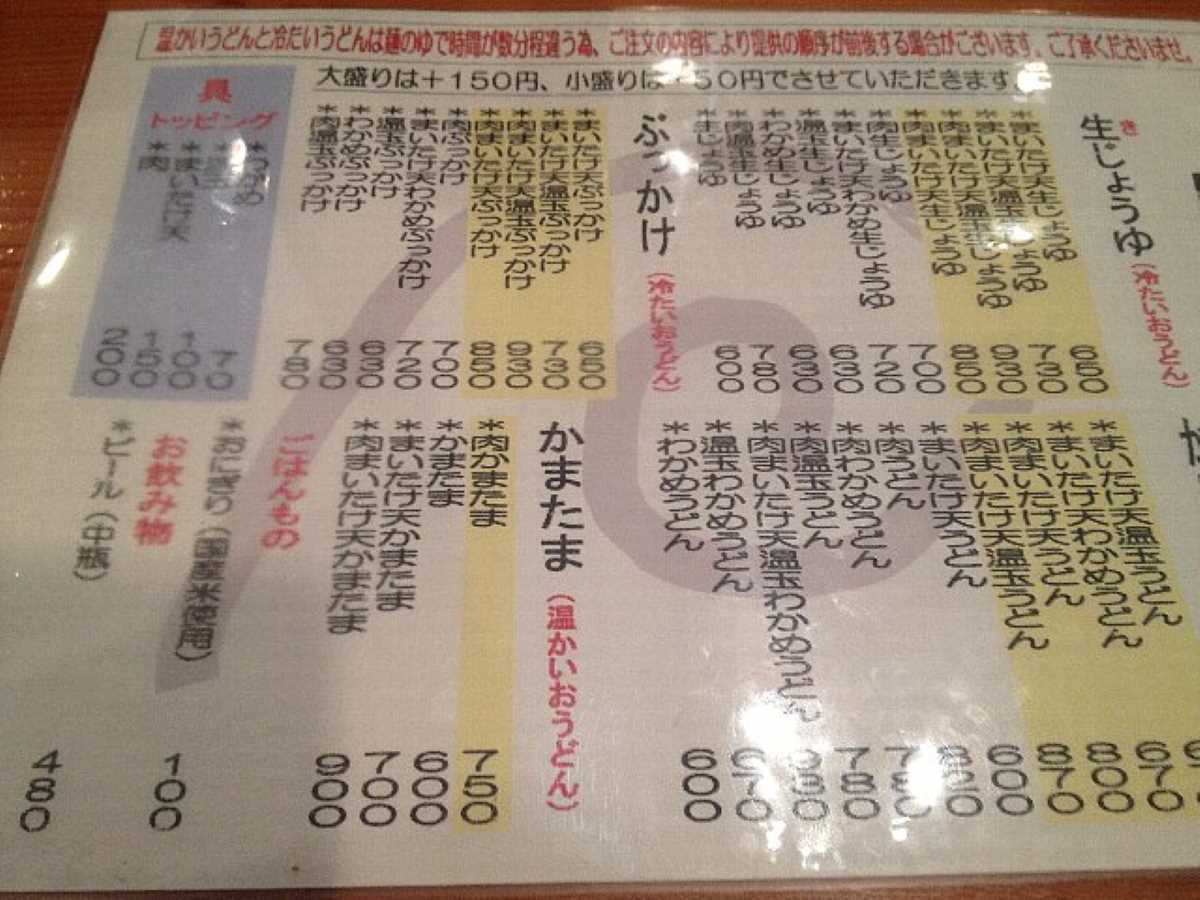 温かいうどんと冷たいうどんは麺のゆで時間が数分程違う為、ご注文の内容により提供の順序が前後する場合がございます。ご了承くださいませ。
大盛りは+150円、小盛りは 50円でさせていただきます。
き
生じょうゆ (冷たいおうどん)
*まいたけ天生じょうゆ 650
*まいたけ天温玉生じょうゆ 730
*肉まいたけ天温玉生じょうゆ 930
*肉まいたけ天生じょうゆ 850
*肉生じょうゆ 700
*まいたけ天わかめ生じょうゆ 720
*温玉生じょうゆ 630
*わかめ生じょうゆ 630
*肉温玉生じょうゆ 780
*生じょうゆ 600
ぶっかけ (冷たいおうどん)
*まいたけ天ぶっかけ 650
*まいたけ天温玉ぶっかけ 730
*肉まいたけ天温玉ぶっかけ 930
*肉まいたけ天ぶっかけ 850
*肉ぶっかけ 700
*まいたけ天わかめぶっかけ 720
*温玉ぶっかけ 630
*わかめぶっかけ 630
*肉温玉ぶっかけ 780
具
トッピング
*わかめ 70
* 100
*まいたけ天 150
*肉 200
*まいたけ天温玉うどん
*まいたけ天わかめうどん 670
*肉まいたけ天うどん 800
*肉まいたけ天温玉うどん 870
*まいたけ天うどん 600
*肉うどん 820
*肉わかめうどん 780
*肉温玉うどん 780
*肉まいたけ天温玉わかめうどん 930
*温玉わかめうどん 670
*わかめうどん 600
かまたま (温かいおうどん)
*肉かまたま 750
*かまたま 600
*まいたけ天かまたま 700
*肉まいたけ天かまたま 900
ごはんもの
*おにぎり(国産米使用) 100
お飲み物
*ビール(中瓶) 480